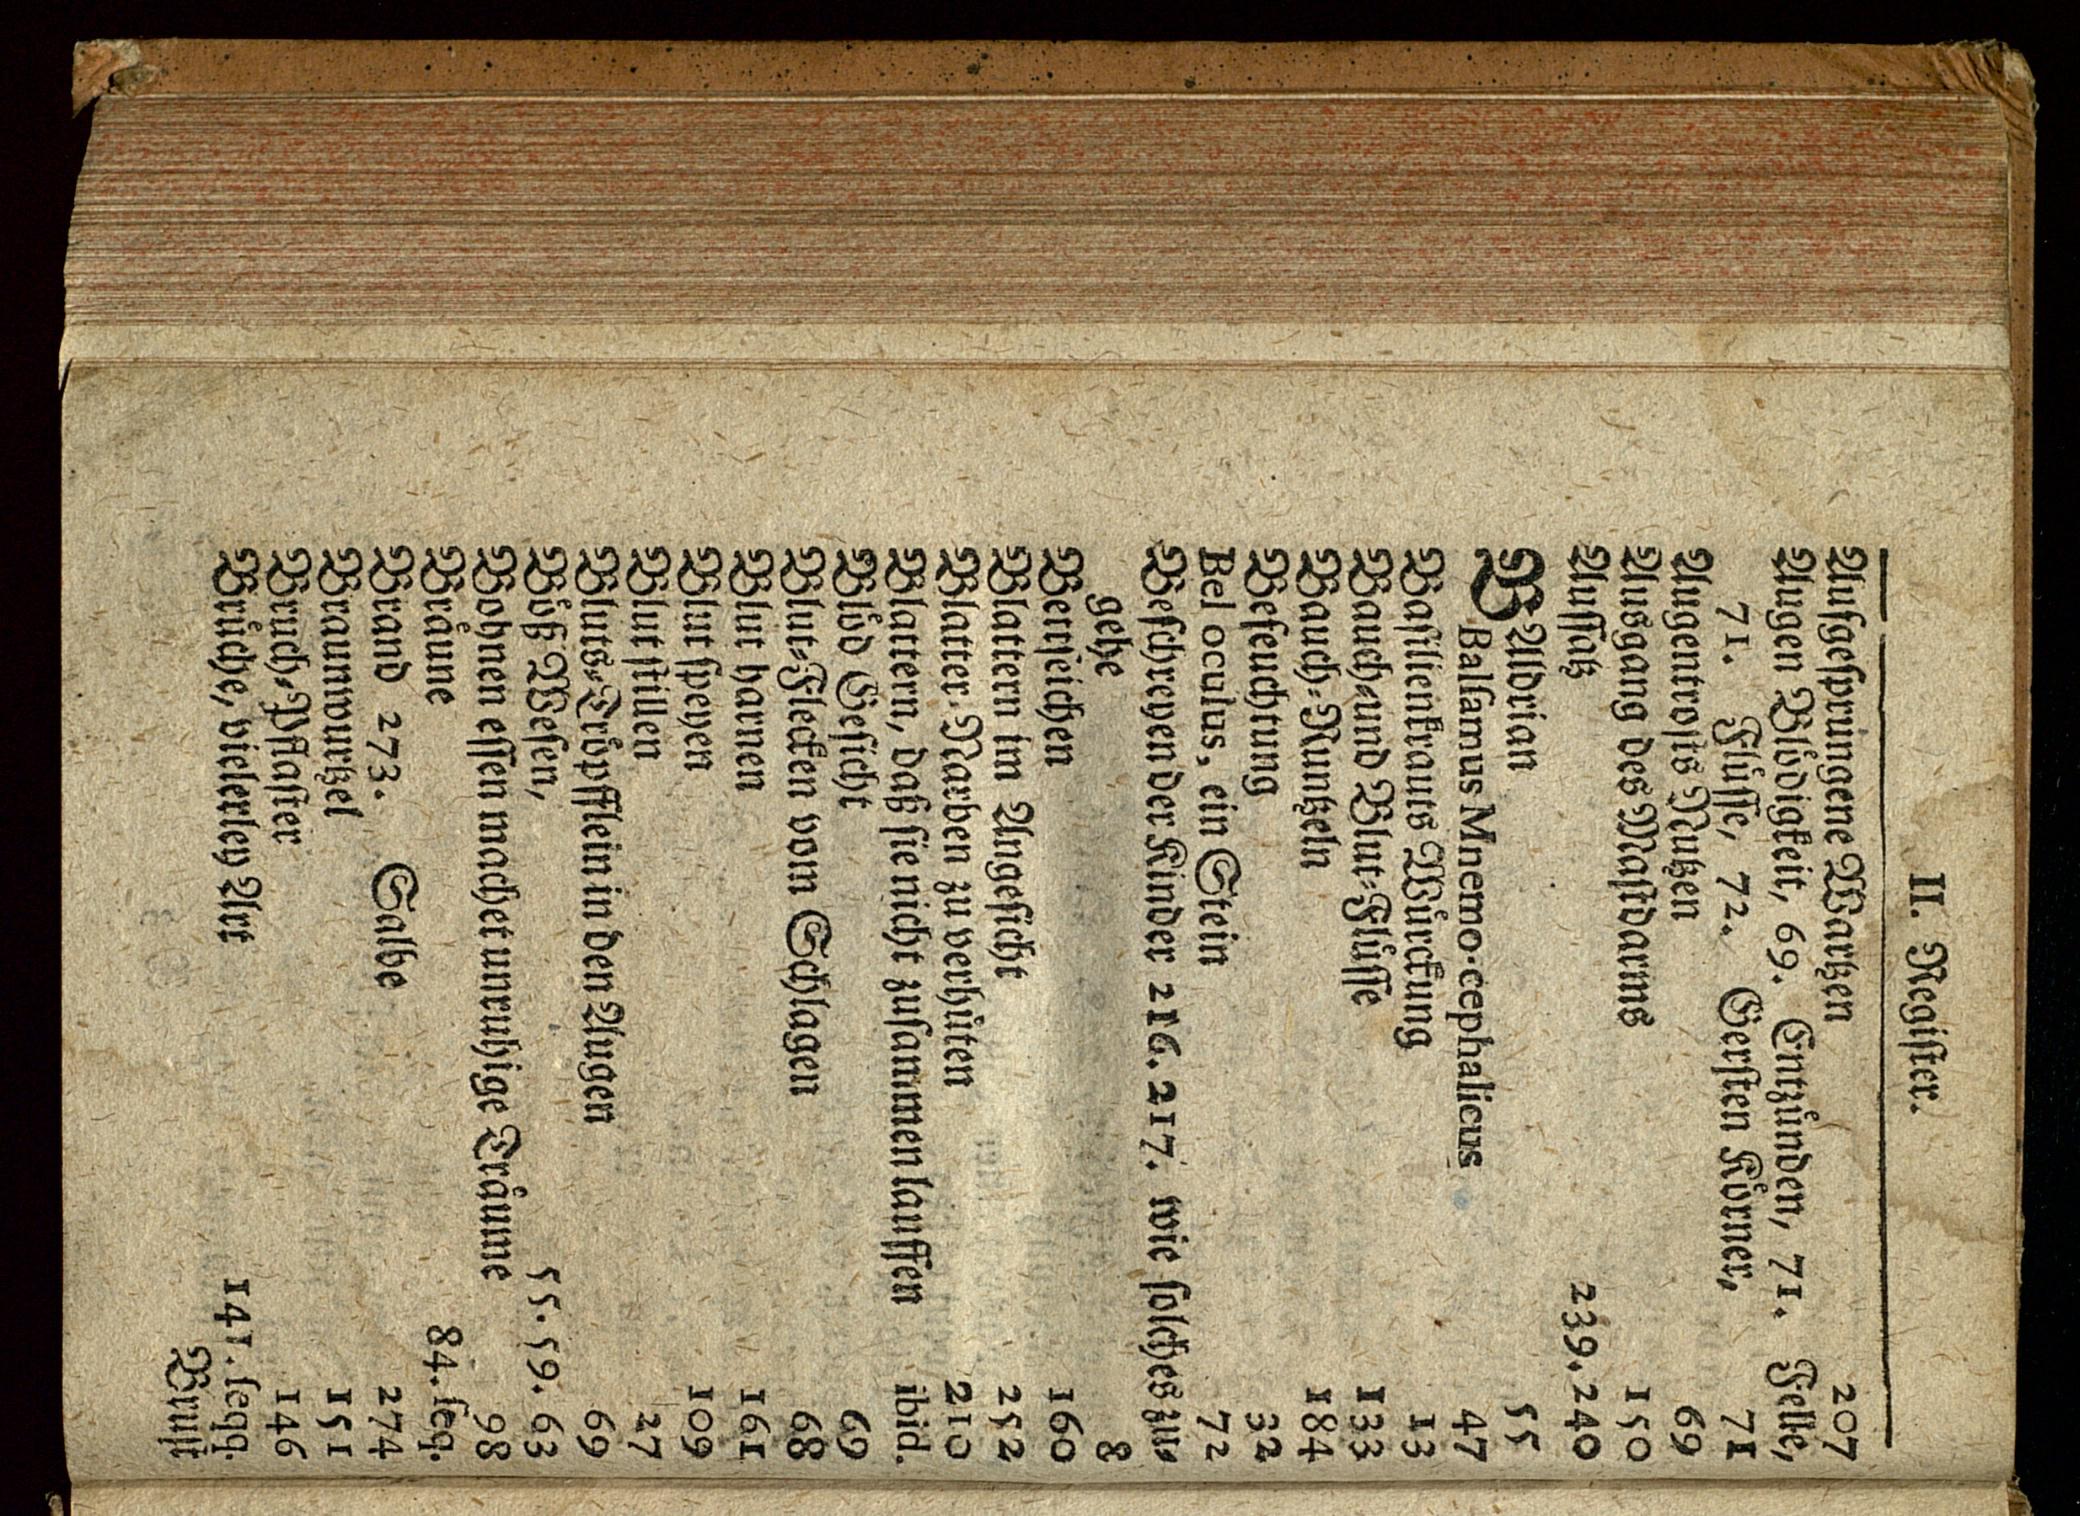 II. Regiſter.
Aufgeſprungene Wartzen 207
Augen Bloͤdigkeit, 69. Entzuͤnden, 71. Felle,
71. Fluͤſſe, 72. Gerſten Koͤrner, 71
Augentroſts Nutzen 69
Ausgang des Maſtdarms 150
Auſſatz 239. 240
BAldrian 55
Balſamus Mnemo-cephalicus 47
Baſilienkrauts Wuͤrckung 13
Bauch- und Blut-Fluͤſſe 133
Bauch-Runtzeln 184
Befeuchtung 32
Bel oculus, ein Stein 72
Beſchreyen der Kinder 216. 217. wie ſolches zu-
gehe 8
Bettſeichen 160
Blattern im Angeſicht 252
Blatter-Narben zu verhuͤten 210
Blattern, daß ſie nicht zuſammen lauffen ibid.
Bloͤd Geſicht 69
Blut-Flecken vom Schlagen 68
Blut harnen 161
Blut ſpeyen 109
Blut ſtillen 27
Bluts-Troͤpfflein in den Augen 69
Boͤß Weſen, 55. 59. 63
Bohnen eſſen machet unruhige Traͤume 98
Braͤune 84. ſeq.
Brand 273. Salbe 274
Braunwurtzel 151
Bruch-Pflaſter 146
Bruͤche, vielerley Art 141. ſeqq.
Bruſt